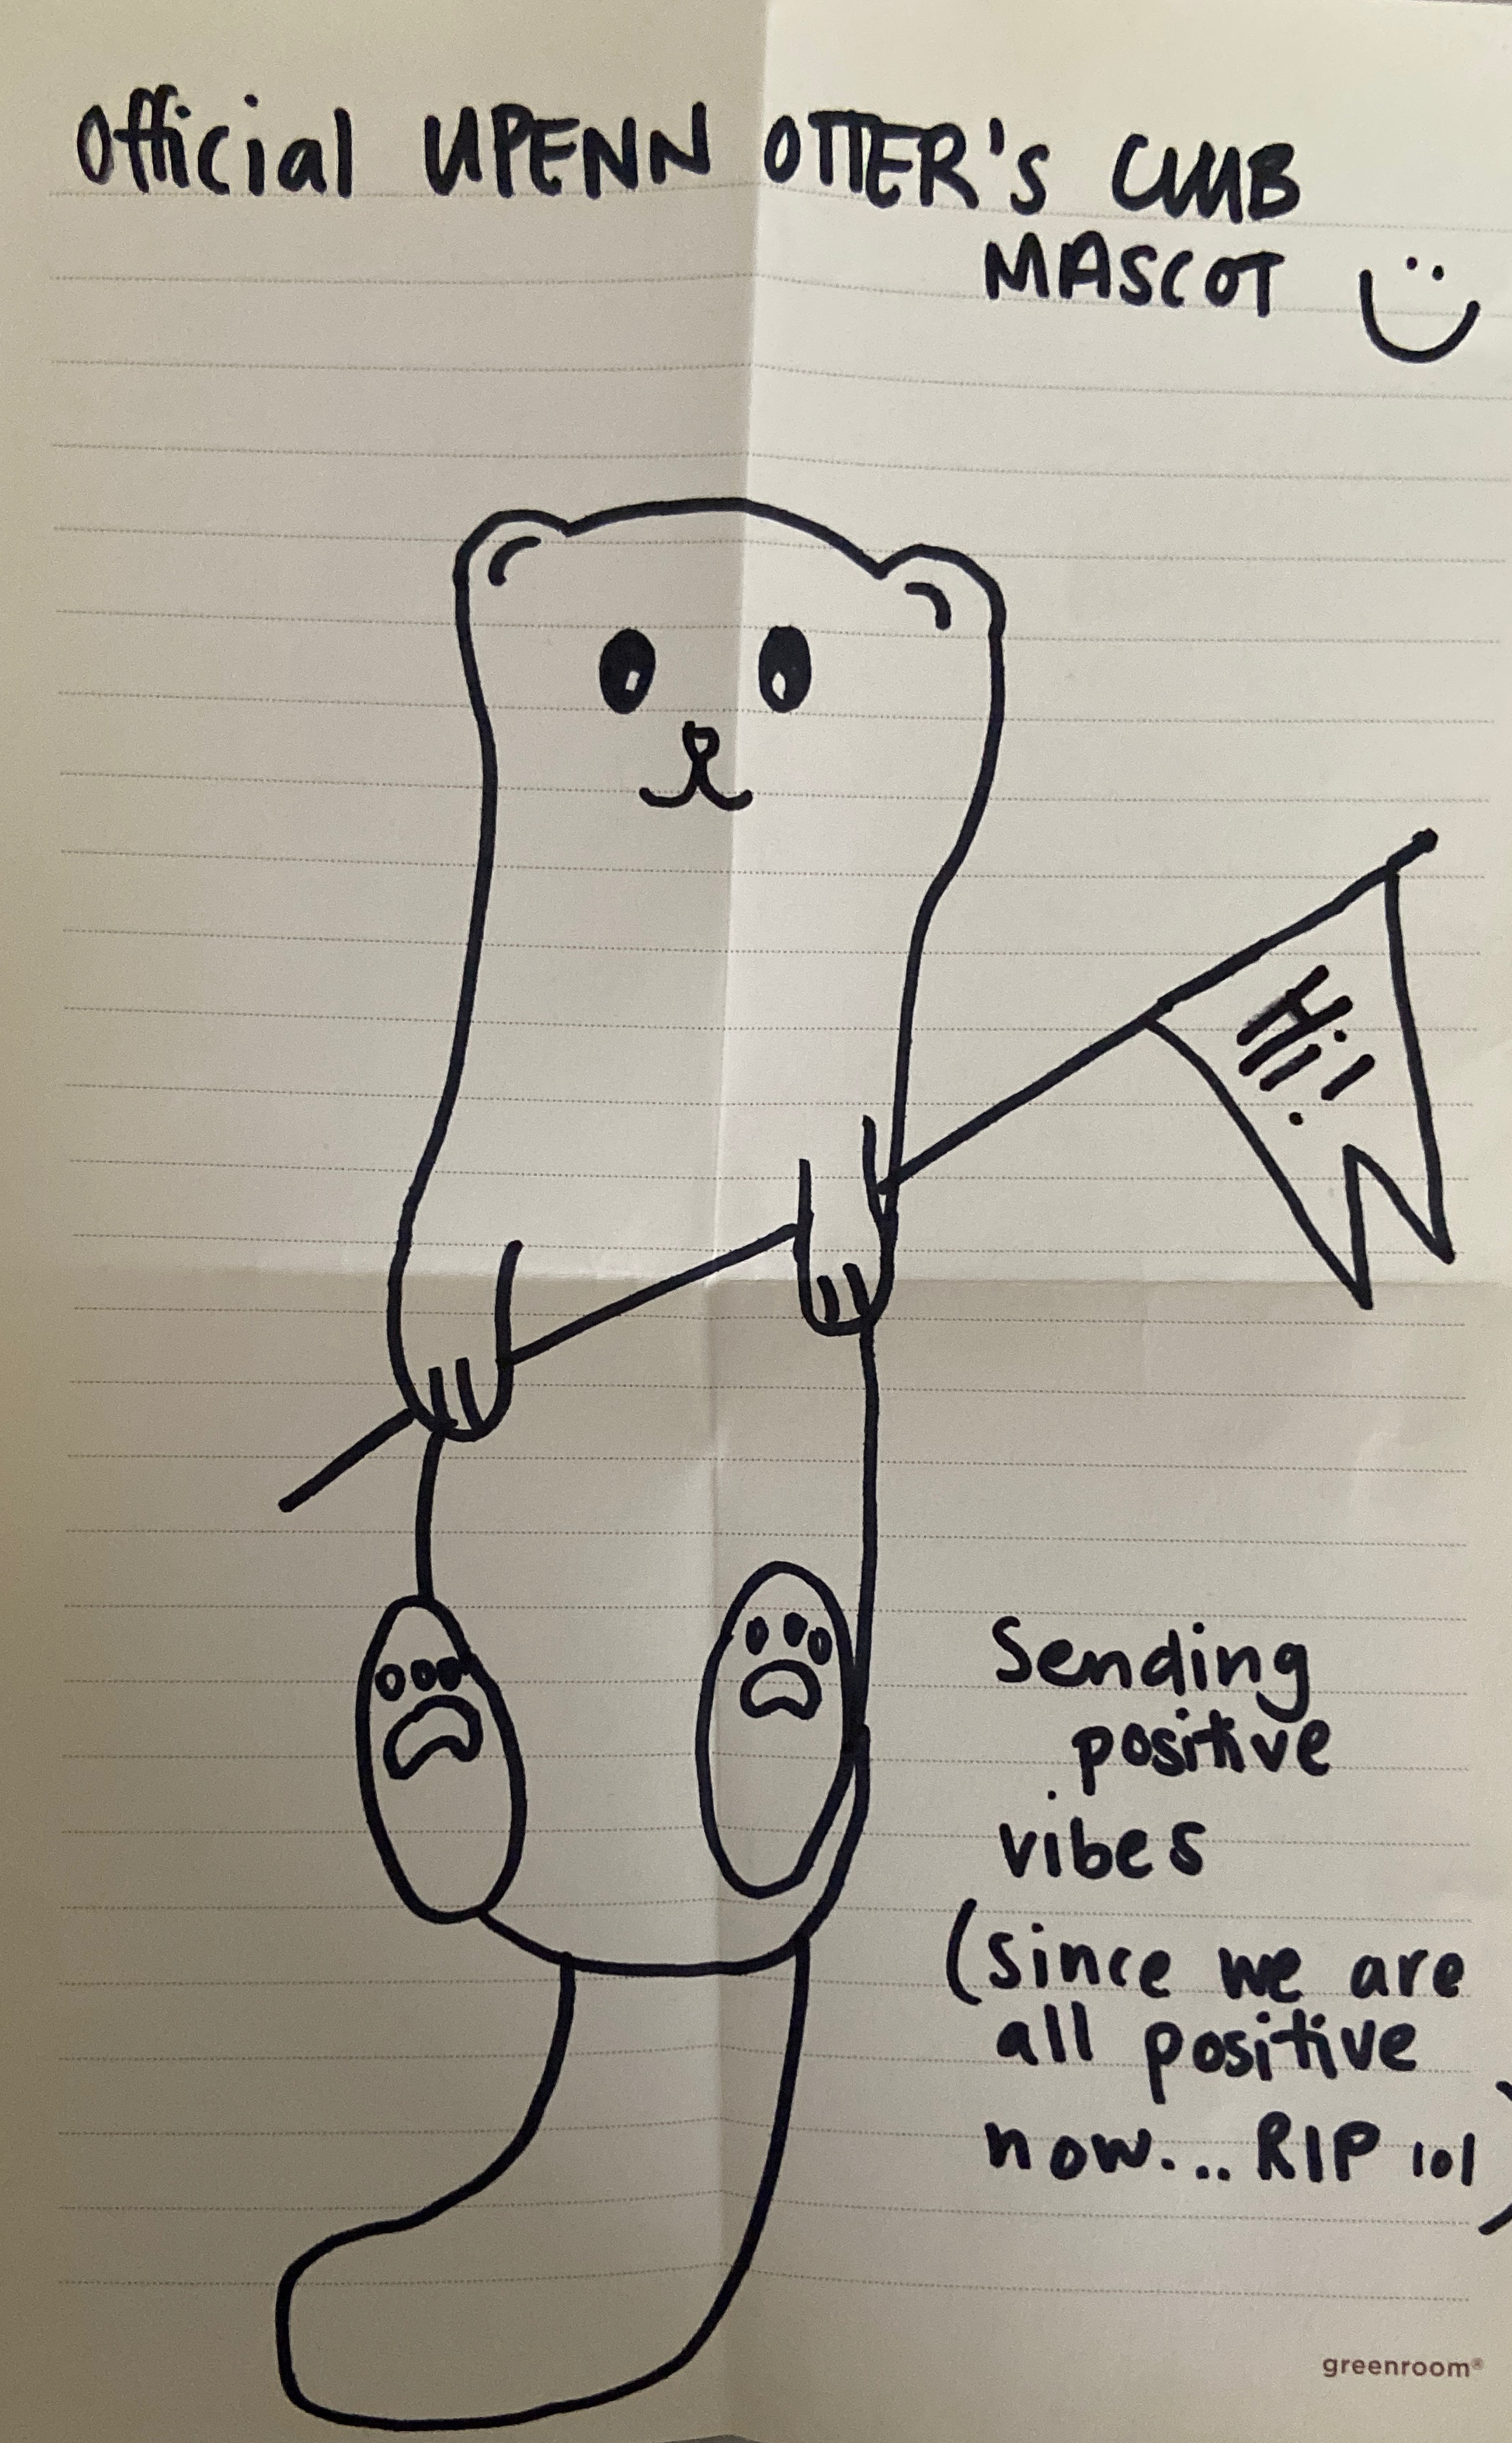 Official UPENN OTTER'S CLUB
MASCOT
Hi!
Sending
positive
vibes
(since we are
all positive
now... RIP lol)
greenroom®